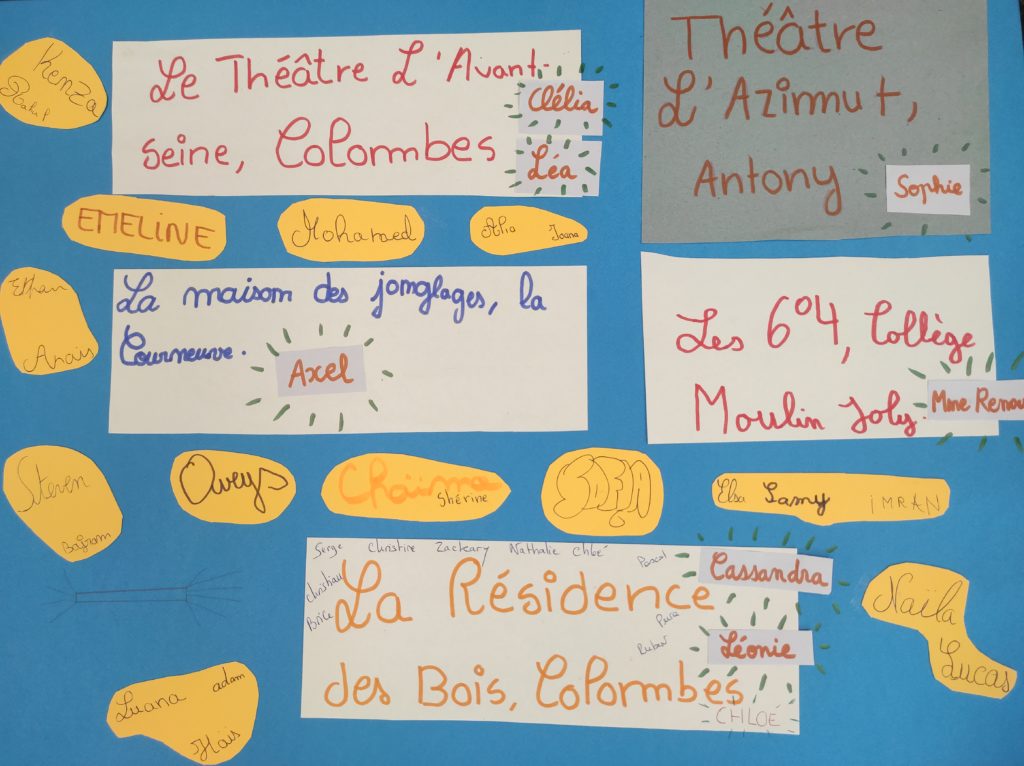 Kenza
Le Théâtre L'Avant-
seine, Colombes
Clélia
Léa
Théâtre
L'Azimut,
Antony
Sophie
EMELINE
Mohamed
Alia
Ethan
Anaïs
La maison des jonglages, la
Courneuve.
Axel
Les 6°4, Collège
Moulin Joly.
Mme Renou
Steven
Bajram
Oveys
Chaïma
Shérine
SOFIA
Elsa Samy IMRAN
Serge Christine Zackary Nathalie Chloé Pascal
Christian
Brice
La Résidence
des Bois, Colombes
Cassandra
Léonie
CHLOÉ
Ruben
Naïla
Lucas
Luana adam